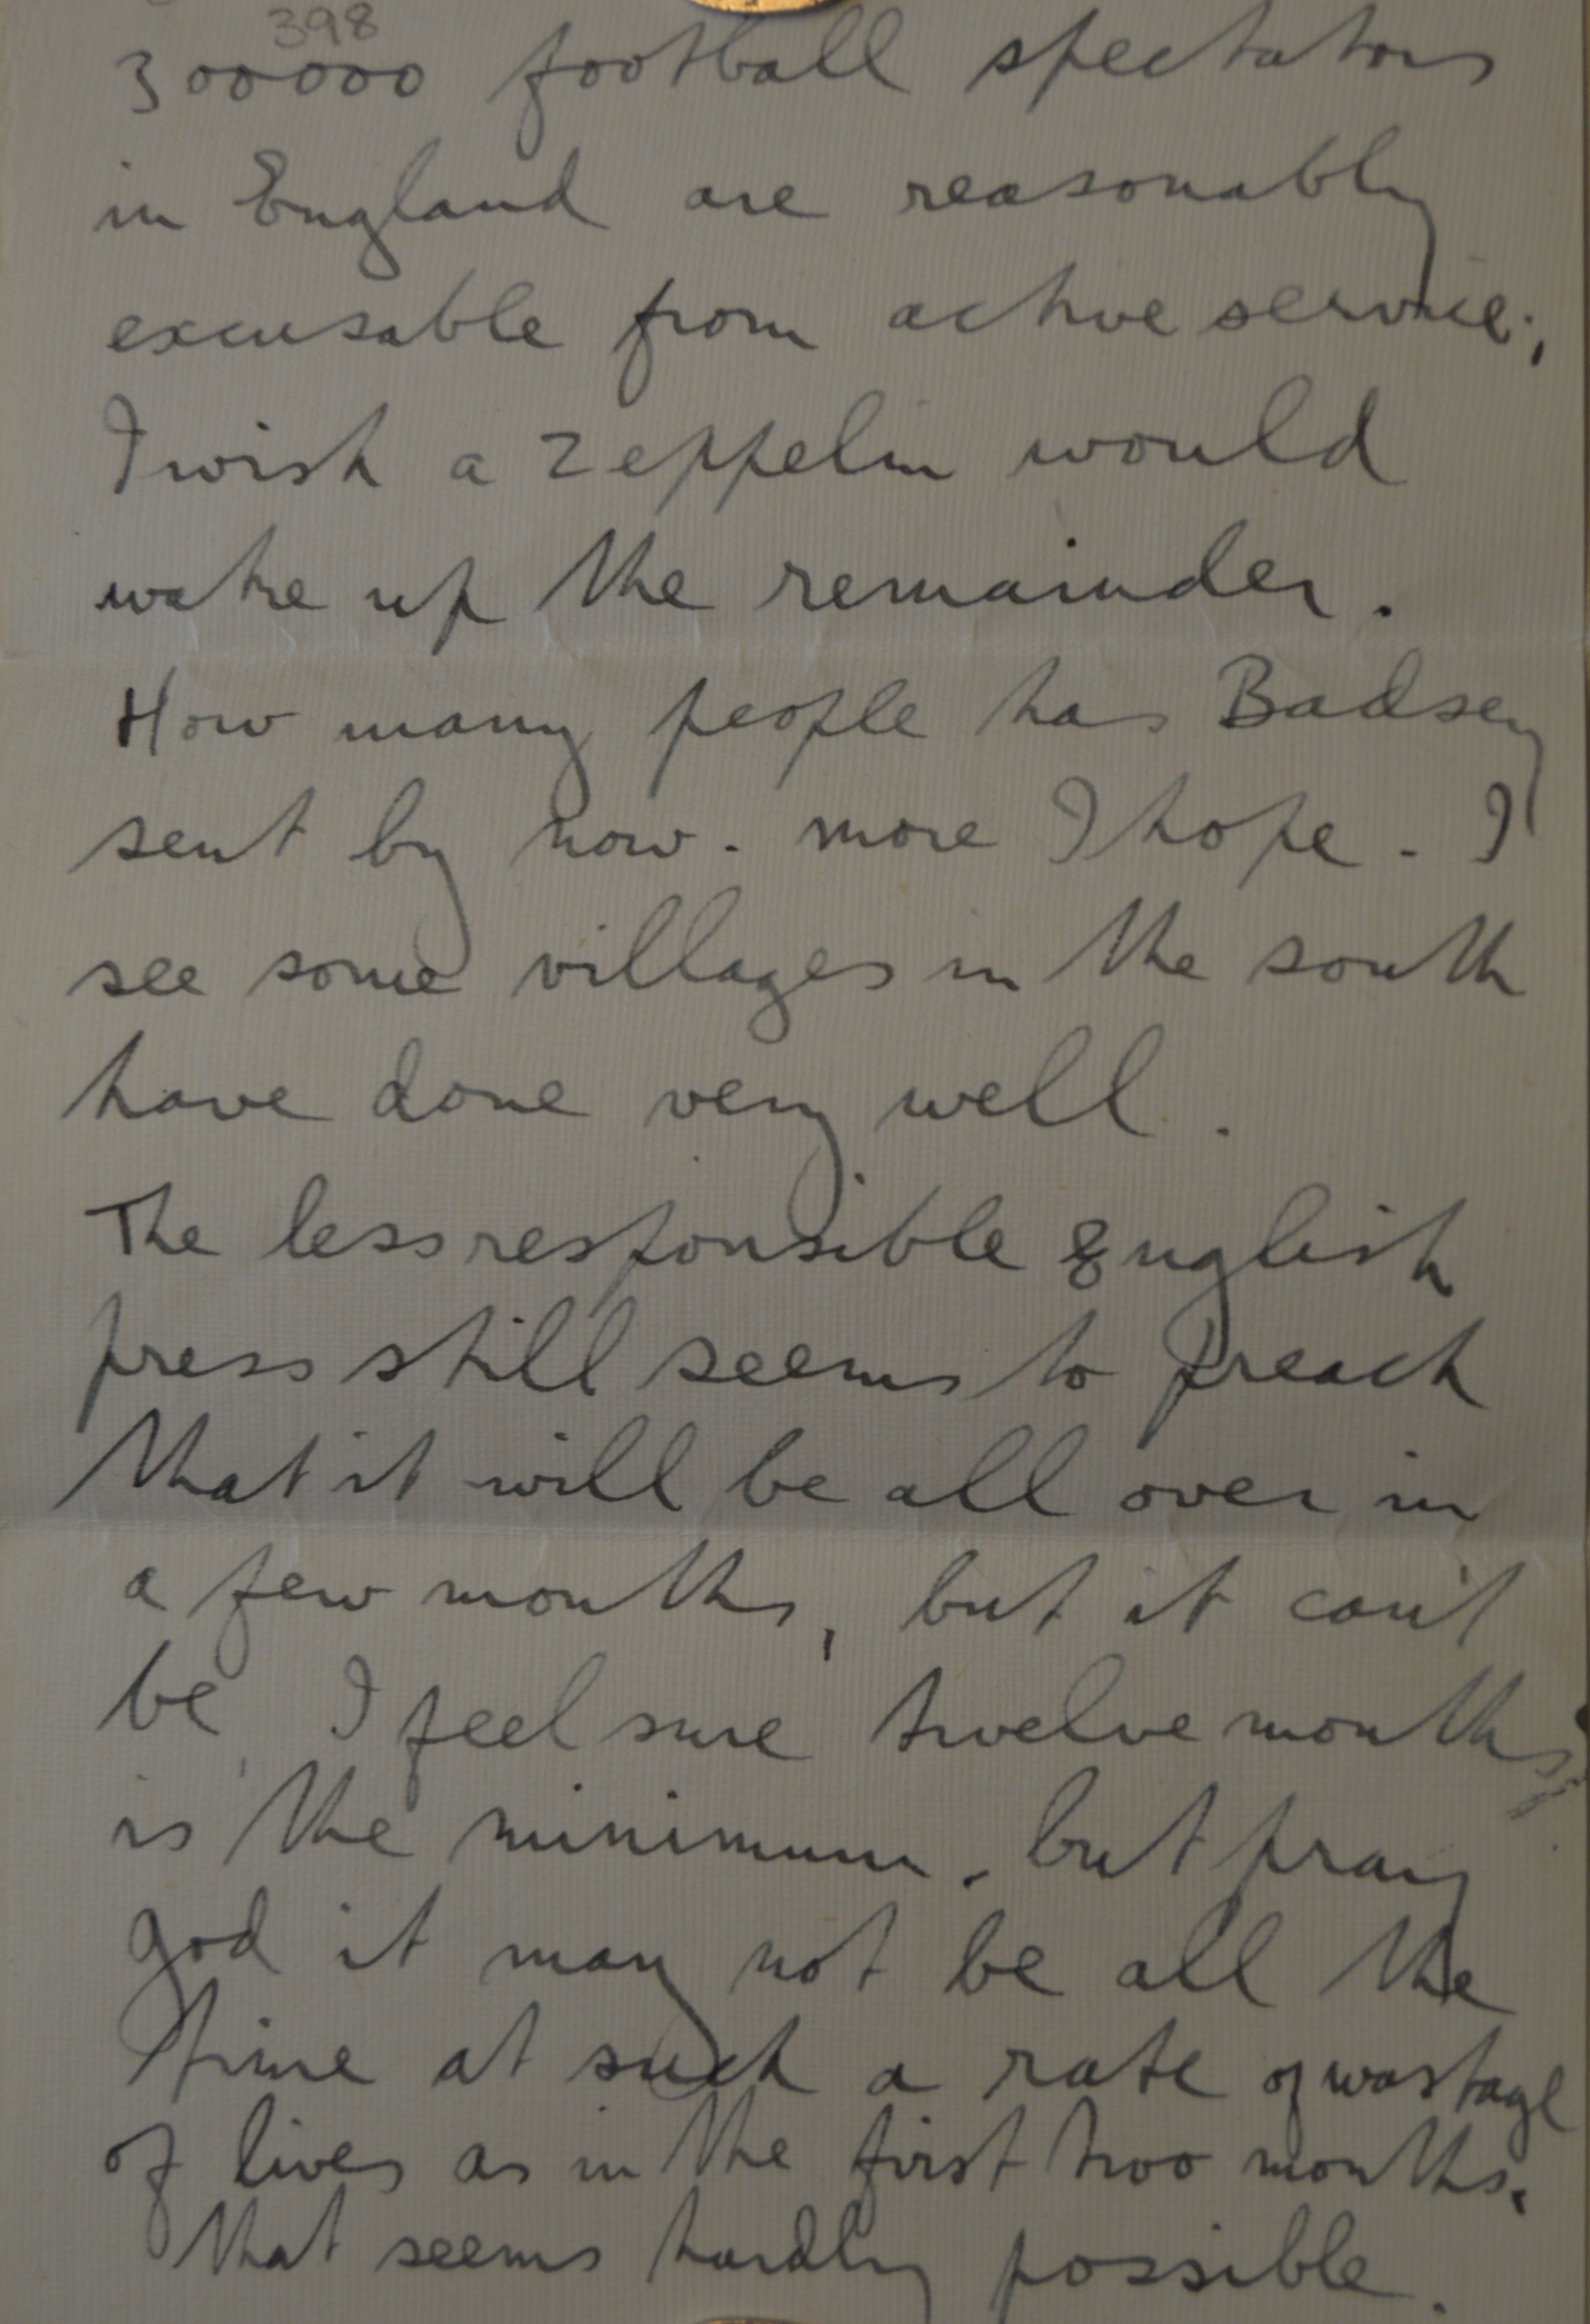 398
300000 football spectators
in England are reasonably
excusable from active service;
I wish a zeppelin would
wake up the remainder.
How many people has Badsey
sent by now. more I hope. I
see some villages in the south
have done very well.
The less responsible English
press still seems to preach
that it will be all over in
a few months, but it can't
be, I feel sure twelve months
is the minimum. but pray
god it may not be all the
time at such a rate of wastage
of lives as in the first two months.
that seems hardly possible.